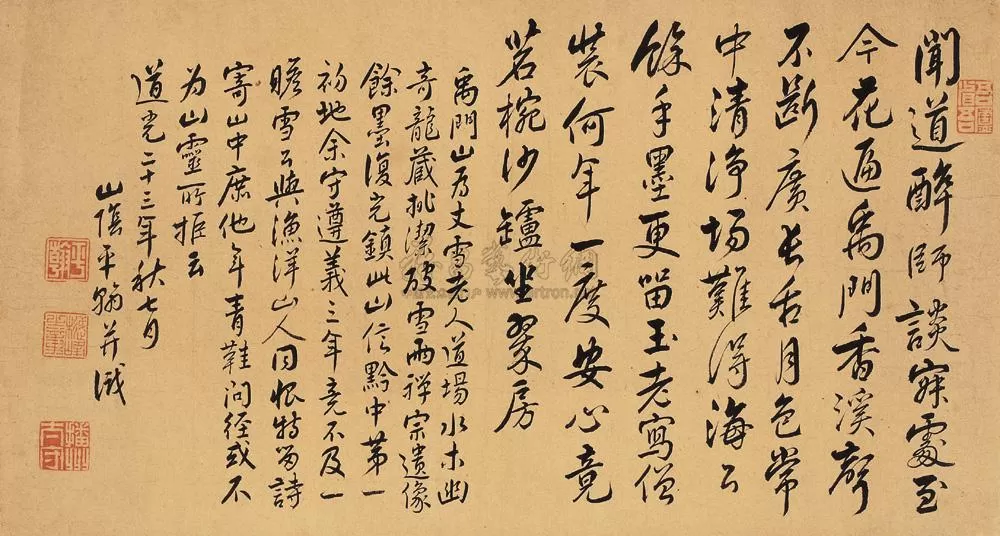 闻道醉师谈寂处至
今花遍禹門香溪聲
不斷廣長舌月色常
中清浄場難得海公
餘手墨更留玉老寫僧
裝何年一度安心竟
茗椀沙鑪坐翠房
禹門山为丈雪老人道場水木幽
奇龍藏挑潔破雪兩禅宗遺像
餘墨復光鎮此山信黔中第一
初地余守遵義三年竟不及一
瞻雪公與漁洋山人同恨特留詩
寄山中庶他年青鞋問徑或不
为山靈所拒云
道光二十三年秋七月
山陰平翰并識